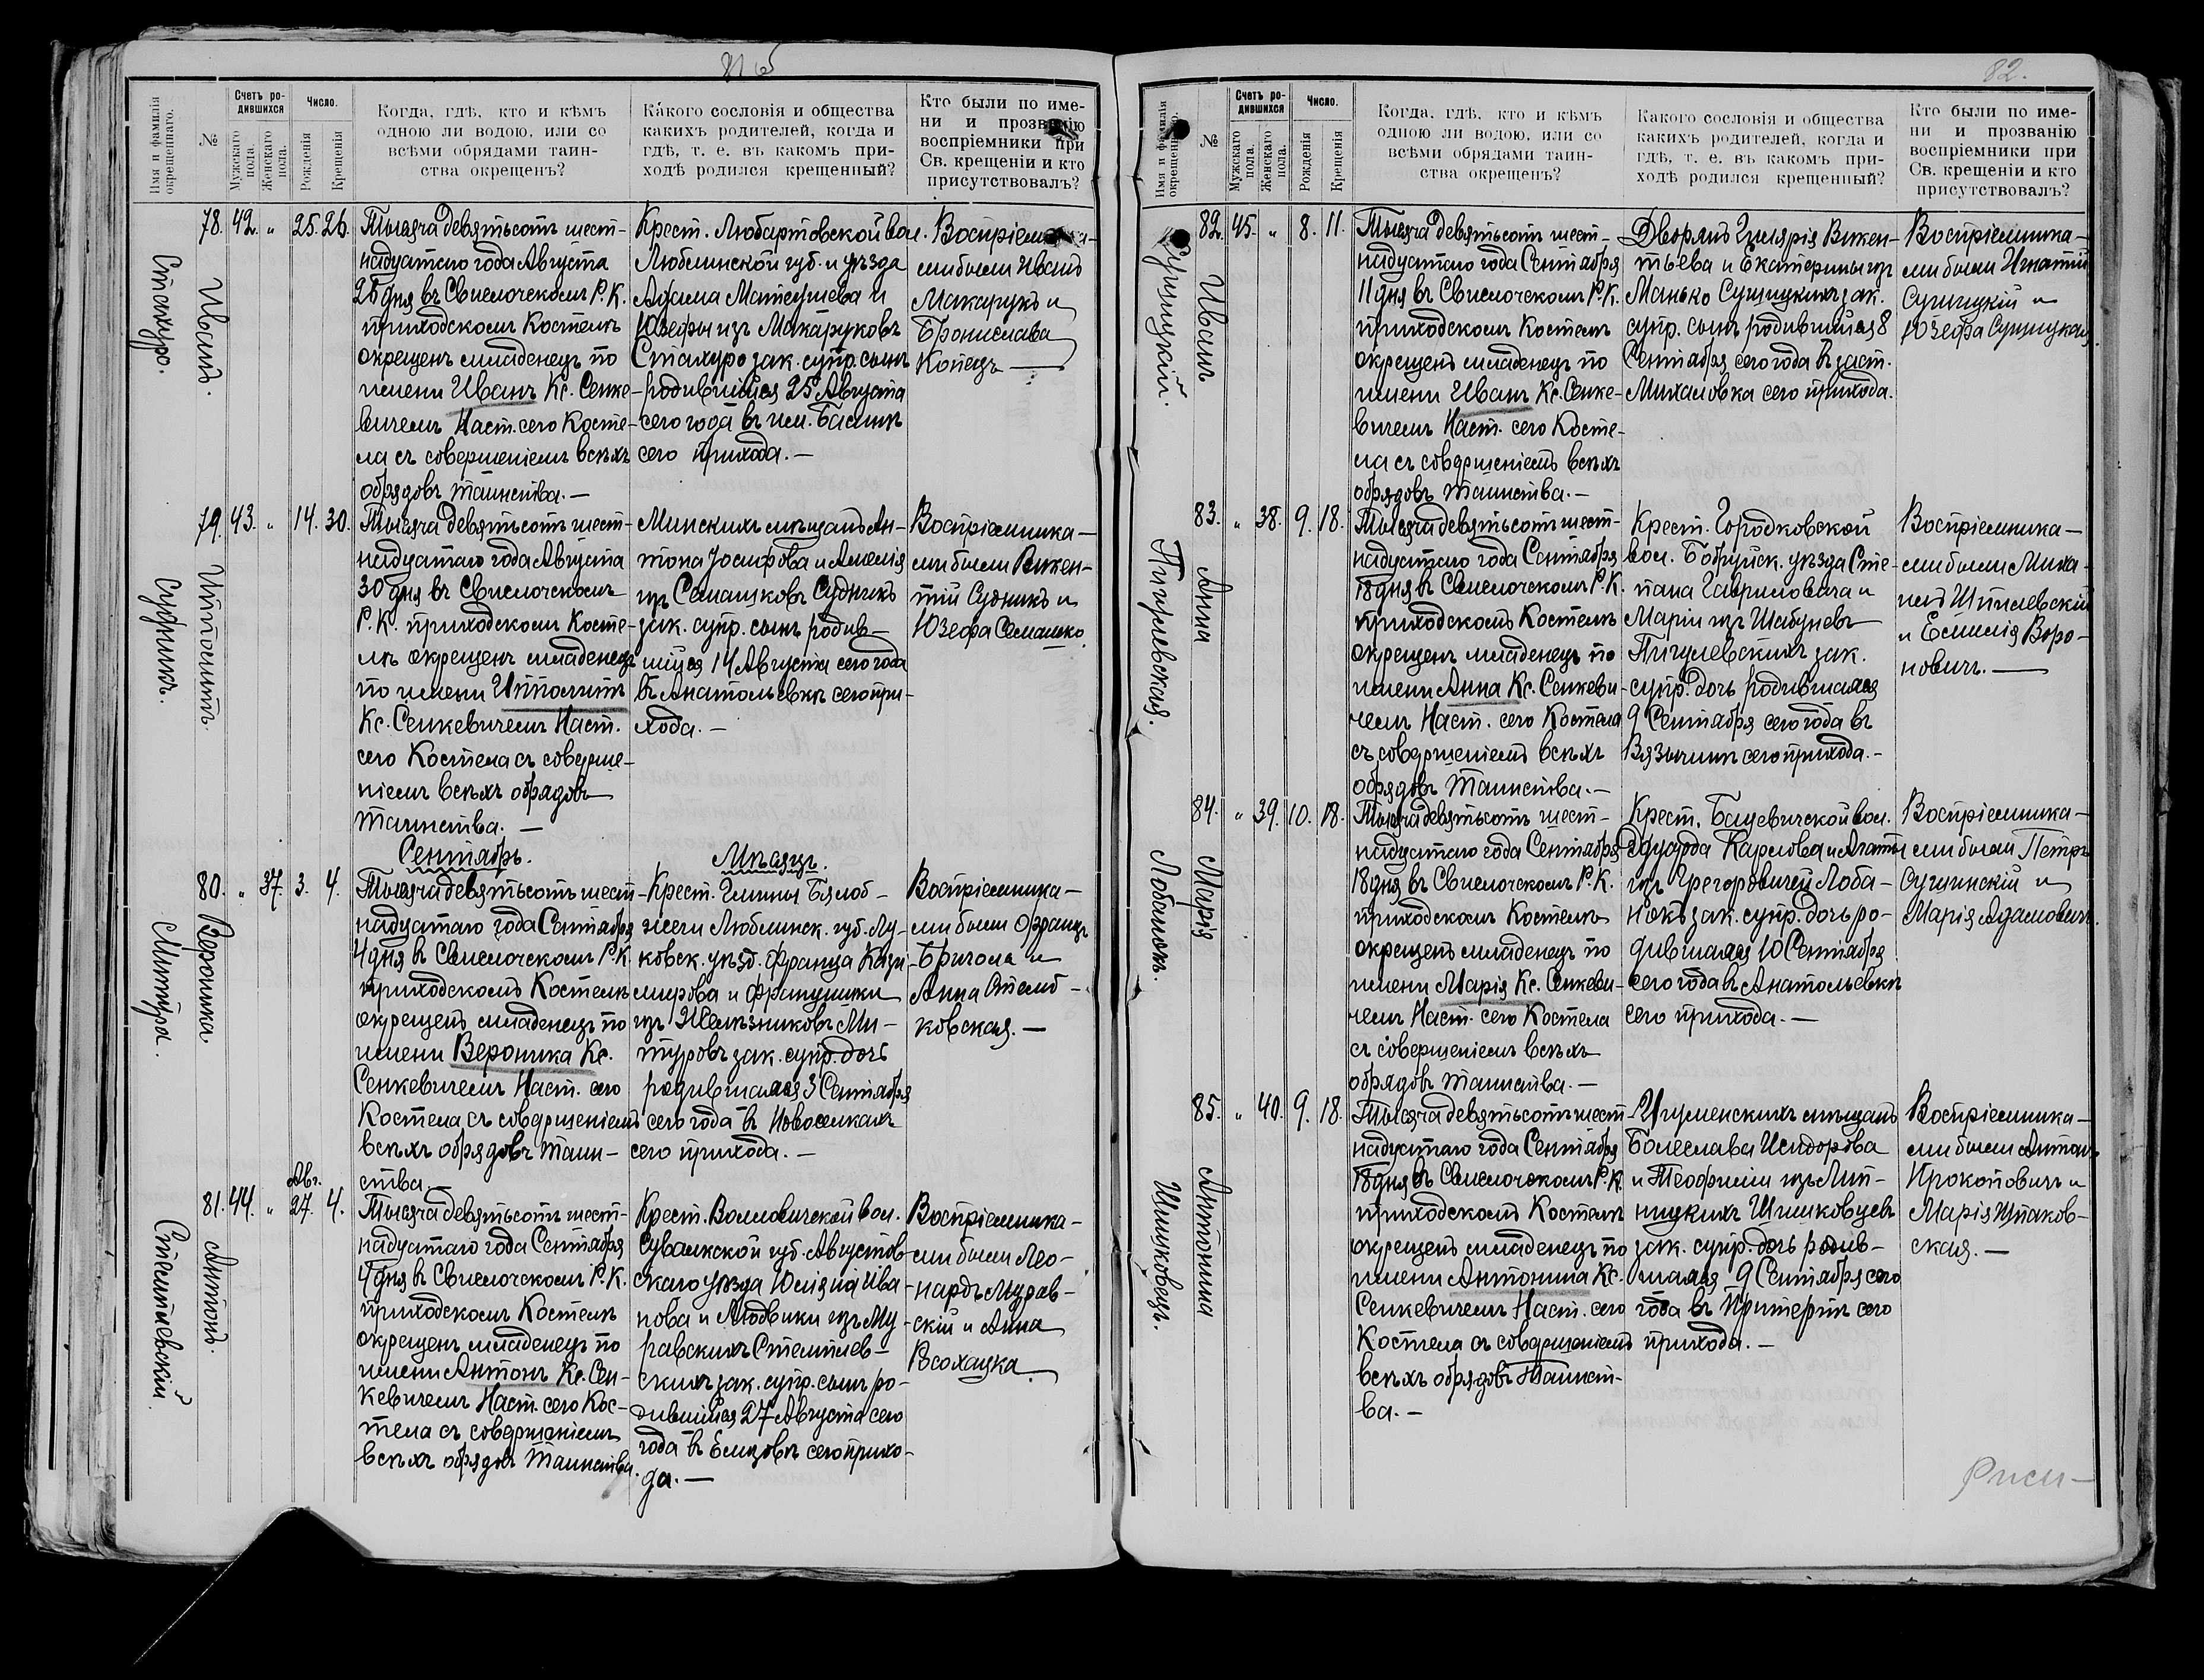 81 об
Имя и фамилія окрещеннаго.
№
Счетъ ро-
дившихся
Мужскаго пола.
Женскаго пола.
Число.
Рожденія
Крещенія
Когда, гдѣ, кто и кѣмъ
одною ли водою, или со
всѣми обрядами таин-
ства окрещенъ?
Какого сословія и общества
какихъ родителей, когда и
гдѣ, т. е. въ какомъ при-
ходѣ родился крещенный?
Кто были по име-
ни и прозванію
воспріемники при
Св. крещеніи и кто
присутствовалъ?
Иванъ.
Стахуро.
78. 42. „ 25. 26.
Тысяча девятьсотъ шест-
надцатаго года Августа
26 дня въ Свислочскомъ Р. К.
приходскомъ Костелѣ
окрещенъ младенецъ по
имени Иванъ Кс. Сенке-
вичемъ Наст. сего Косте-
ла съ совершеніемъ всѣхъ
обрядовъ таинства. —
Крест. Любартовской вол.
Люблинской губ. и уѣзда
Адама Матеушева и
Юзефы изъ Макаруковъ
Стахуро зак. супр. сынъ
родившійся 25 Августа
сего года въ им. Басинѣ
сего прихода. —
Воспріемника-
ми были Иванъ
Макарукъ и
Бронислава
Копецъ —
Ипполитъ.
Судникъ.
79. 43. „ 14. 30.
Тысяча девятьсотъ шест-
надцатаго года Августа
30 дня въ Свислочскомъ
Р. К. приходскомъ Косте-
лѣ окрещенъ младенецъ
по имени Ипполитъ
Кс. Сенкевичемъ Наст.
сего Костела съ соверше-
ніемъ всѣхъ обрядовъ
таинства. —
Минскихъ мѣщанъ Ан-
тона Іосифова и Амелія
изъ Семашковъ Судникъ
зак. супр. сынъ родив-
шійся 14 Августа сего года
въ Анатольевкѣ сего при-
хода. —
Воспріемника-
ми были Викен-
тій Судникъ и
Юзефа Семашко.
Сентябрь. Мѣсяцъ.
Вероника
Митура.
80. „ 37. 3. 4.
Тысяча девятьсотъ шест-
надцатаго года Сентября
4 дня въ Свислочскомъ Р. К.
приходскомъ Костелѣ
окрещенъ младенецъ по
имени Вероника Кс.
Сенкевичемъ Наст. сего
Костела съ совершеніемъ
всѣхъ обрядовъ таин-
ства —
Крест. Гмины Бялоб-
жеги Люблинск. губ. Лу-
ковск. уѣзд. Франца Кази-
мирова и Францишки
изъ Желѣзниковъ Ми-
туровъ зак. супр. дочь
родившаяся 3 Сентября
сего года въ Новоселкахъ
сего прихода. —
Воспріемника-
ми были Францъ
Бригола и
Анна
ковская. —
Антонъ.
Стемплевскій.
81. 44. „ Авг. 27. 4.
Тысяча девятьсотъ шест-
надцатаго года Сентября
4 дня въ Свислочскомъ Р. К.
приходскомъ Костелѣ
окрещенъ младенецъ по
имени Антонъ Кс. Сен-
кевичемъ Наст. сего Кос-
тела съ совершеніемъ
всѣхъ обрядовъ таинства.
Крест. Волловичской вол.
Сувалкской губ. Августов-
скаго уѣзда Юліяна Ива-
нова и Людвики изъ Му-
равскихъ Стемплев-
скихъ зак. супр. сынъ ро-
дившійся 27 Августа сего
года въ Елизовѣ сего прихо-
да. —
Воспріемника-
ми были Лео-
нардъ Мурав-
скій и Анна
82.
Имя и фамилія окрещеннаго.
№
Счетъ ро-
дившихся
Мужскаго пола.
Женскаго пола.
Число.
Рожденія
Крещенія
Когда, гдѣ, кто и кѣмъ
одною ли водою, или со
всѣми обрядами таин-
ства окрещенъ?
Какого сословія и общества
какихъ родителей, когда и
гдѣ, т. е. въ какомъ при-
ходѣ родился крещенный?
Кто были по име-
ни и прозванію
воспріемники при
Св. крещеніи и кто
присутствовалъ?
Иванъ
Сущицкій.
82. 45. „ 8. 11.
Тысяча девятьсотъ шест-
надцатаго года Сентября
11 дня въ Свислочскомъ Р. К.
приходскомъ Костелѣ
окрещенъ младенецъ по
имени Иванъ Кс. Сенке-
вичемъ Наст. сего Косте-
ла съ совершеніемъ всѣхъ
обрядовъ таинства. —
Дворянъ Гилярія Викен-
тьева и Екатерины изъ
Манько Сущицкихъ зак.
супр. сынъ родившійся 8
Сентября сего года въ заст.
Михаловка сего прихода.
Воспріемника-
ми были Игнатій
Сущицкій и
Юзефа Сущицкая.
Анна
Пигулевская.
83. „ 38. 9. 18.
Тысяча девятьсотъ шест-
надцатаго года Сентября
18 дня въ Свислочскомъ Р. К.
приходскомъ Костелѣ
окрещенъ младенецъ по
имени Анна Кс. Сенкеви-
чемъ Наст. сего Костела
съ совершеніемъ всѣхъ
обрядовъ таинства. —
Крест. Городковской
вол. Бобруйск. уѣзда Сте-
пана Гавриловича и
Маріи изъ Шабуневъ
Пигулевскихъ зак.
супр. дочь родившаяся
9 Сентября сего года въ
Вязычинѣ сего прихода. —
Воспріемника-
ми были Миха-
илъ Шпилевскій
и Емилія Воро-
новичъ. —
Марія
Лобанокъ.
84. „ 39. 10. 18.
Тысяча девятьсотъ шест-
надцатаго года Сентября
18 дня въ Свислочскомъ Р. К.
приходскомъ Костелѣ
окрещенъ младенецъ по
имени Марія Кс. Сенкеви-
чемъ Наст. сего Костела
съ совершеніемъ всѣхъ
обрядовъ таинства. —
Крест. Бацевичской вол.
Эдуарда Карлова и Агаты
изъ Грегоровичей Лоба-
нокъ зак. супр. дочь ро-
дившаяся 10 Сентября
сего года въ Анатольевкѣ
сего прихода. —
Воспріемника-
ми были Петръ
Сущинскій и
Марія Адамовичъ.
Антонина
Шишковецъ.
85. „ 40. 9. 18.
Тысяча девятьсотъ шест-
надцатаго года Сентября
18 дня въ Свислочскомъ Р. К.
приходскомъ Костелѣ
окрещенъ младенецъ по
имени Антонина Кс.
Сенкевичемъ Наст. сего
Костела съ совершеніемъ
всѣхъ обрядовъ таинст-
ва. —
Игуменскихъ мѣщанъ
Болеслава Исидорова
и Теофиліи изъ Лип-
ницкихъ Шишковцевъ
зак. супр. дочь родив-
шаяся 9 Сентября сего
года въ Притертѣ сего
прихода. —
Воспріемника-
ми были Антонъ
Прокоповичъ и
Марія Шпаков-
ская. —